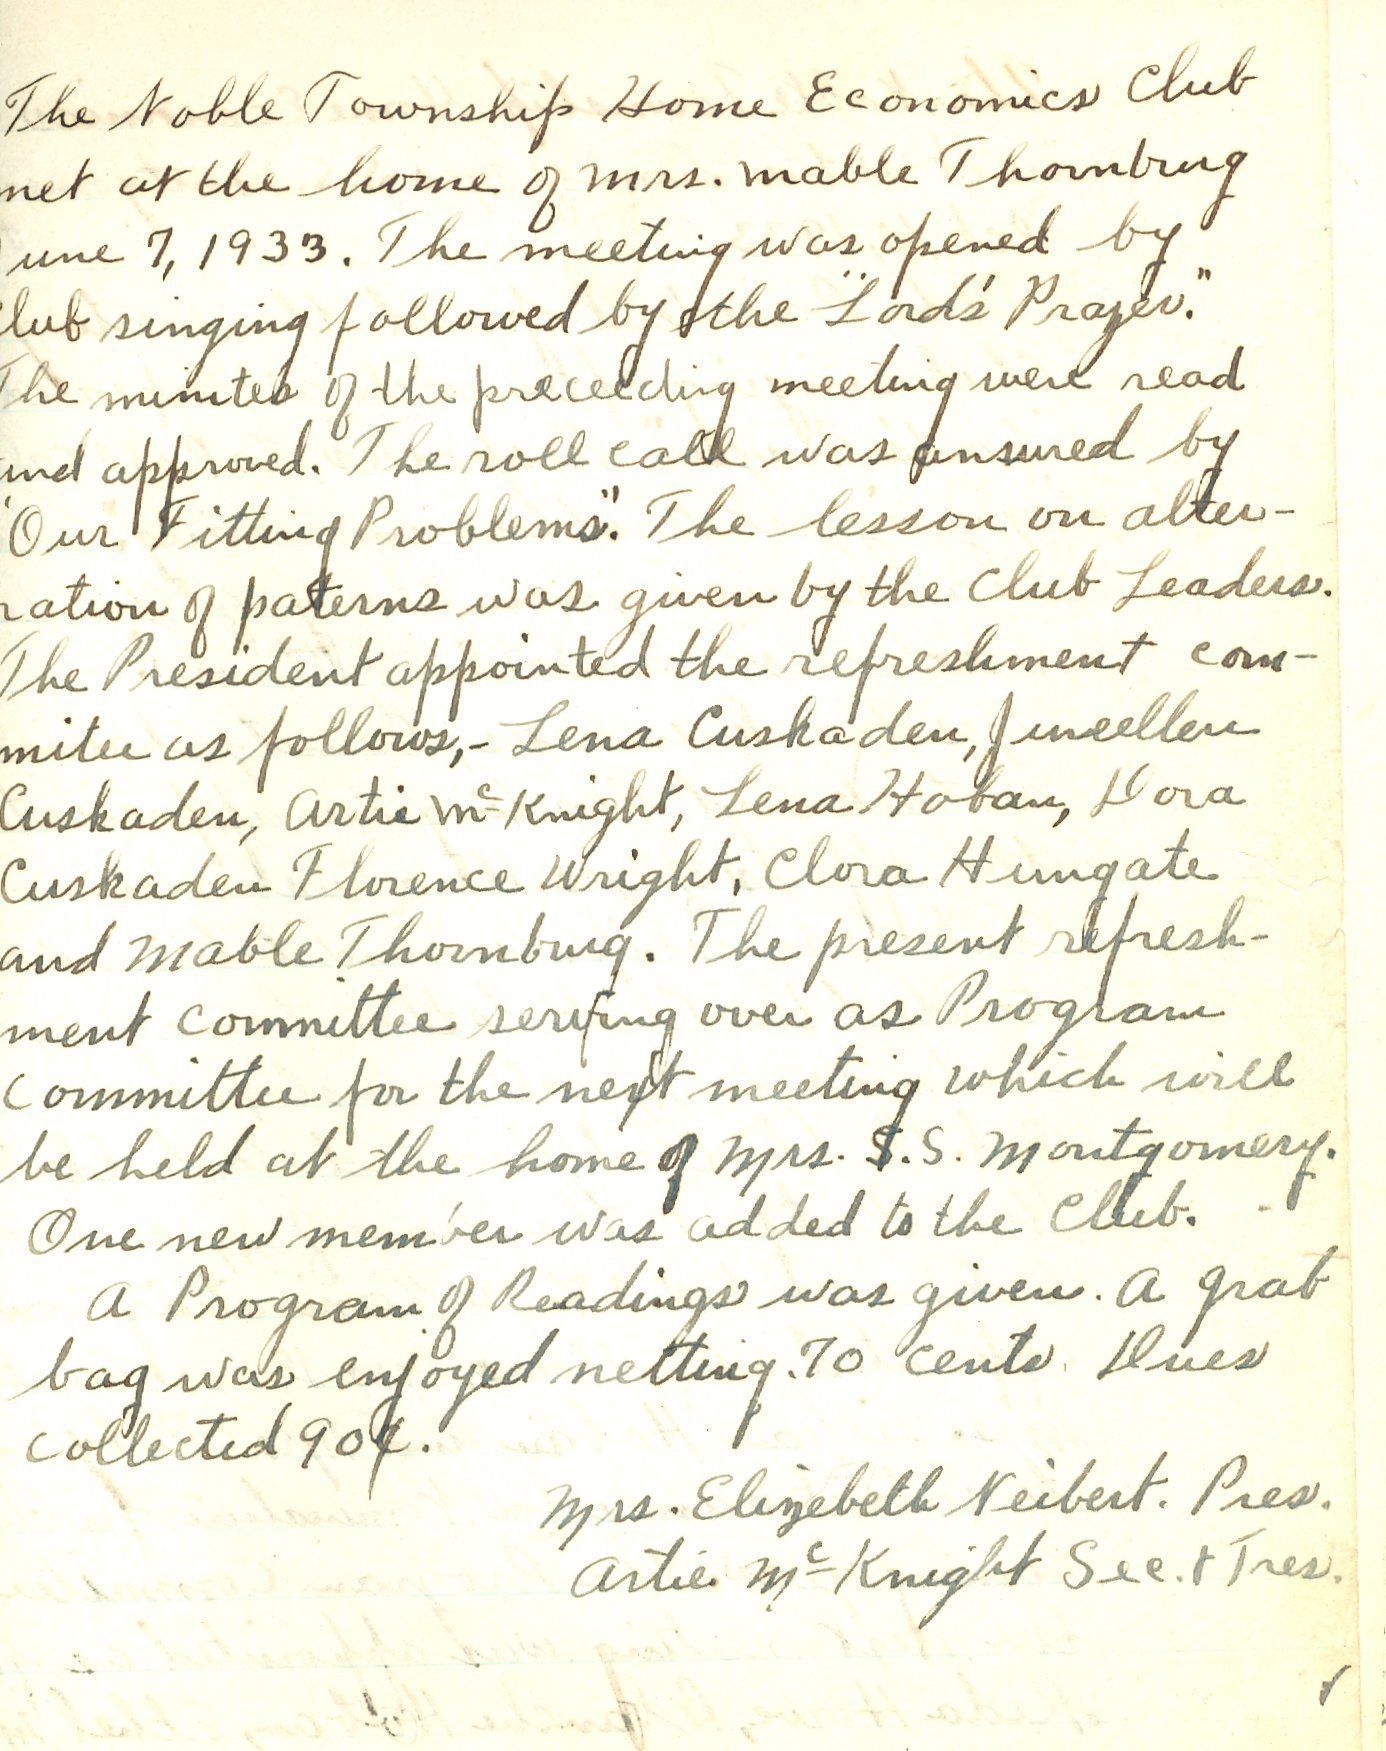 The Noble Township Home Economics Club
met at the home of Mrs. Mable Thornburg
June 7, 1933. The meeting was opened by
Club singing followed by the "Lord's Prayer."
The minutes of the preceeding meeting were read
and approved. The roll call was ansured by
"Our Fitting Problems". The lesson on alter-
ration of paterns was given by the Club Leaders.
The President appointed the refreshment com-
mitee as follows,- Lena Cuskaden, Juneellen
Cuskaden, Artie McKnight, Lena Hoban, Dora
Cuskaden Florence Wright, Clora Hungate
and Mable Thornburg. The present refresh-
ment committee serving over as Program
Committee for the next meeting which will
be held at the home of Mrs. S.S. Montgomery.
One new member was added to the Club.
A Program of Readings was given. A grab
bag was enjoyed netting .70 cents. Dues
collected 90¢.
Mrs. Elizebeth Neibert. Pres.
Artie McKnight Sec. & Tres.